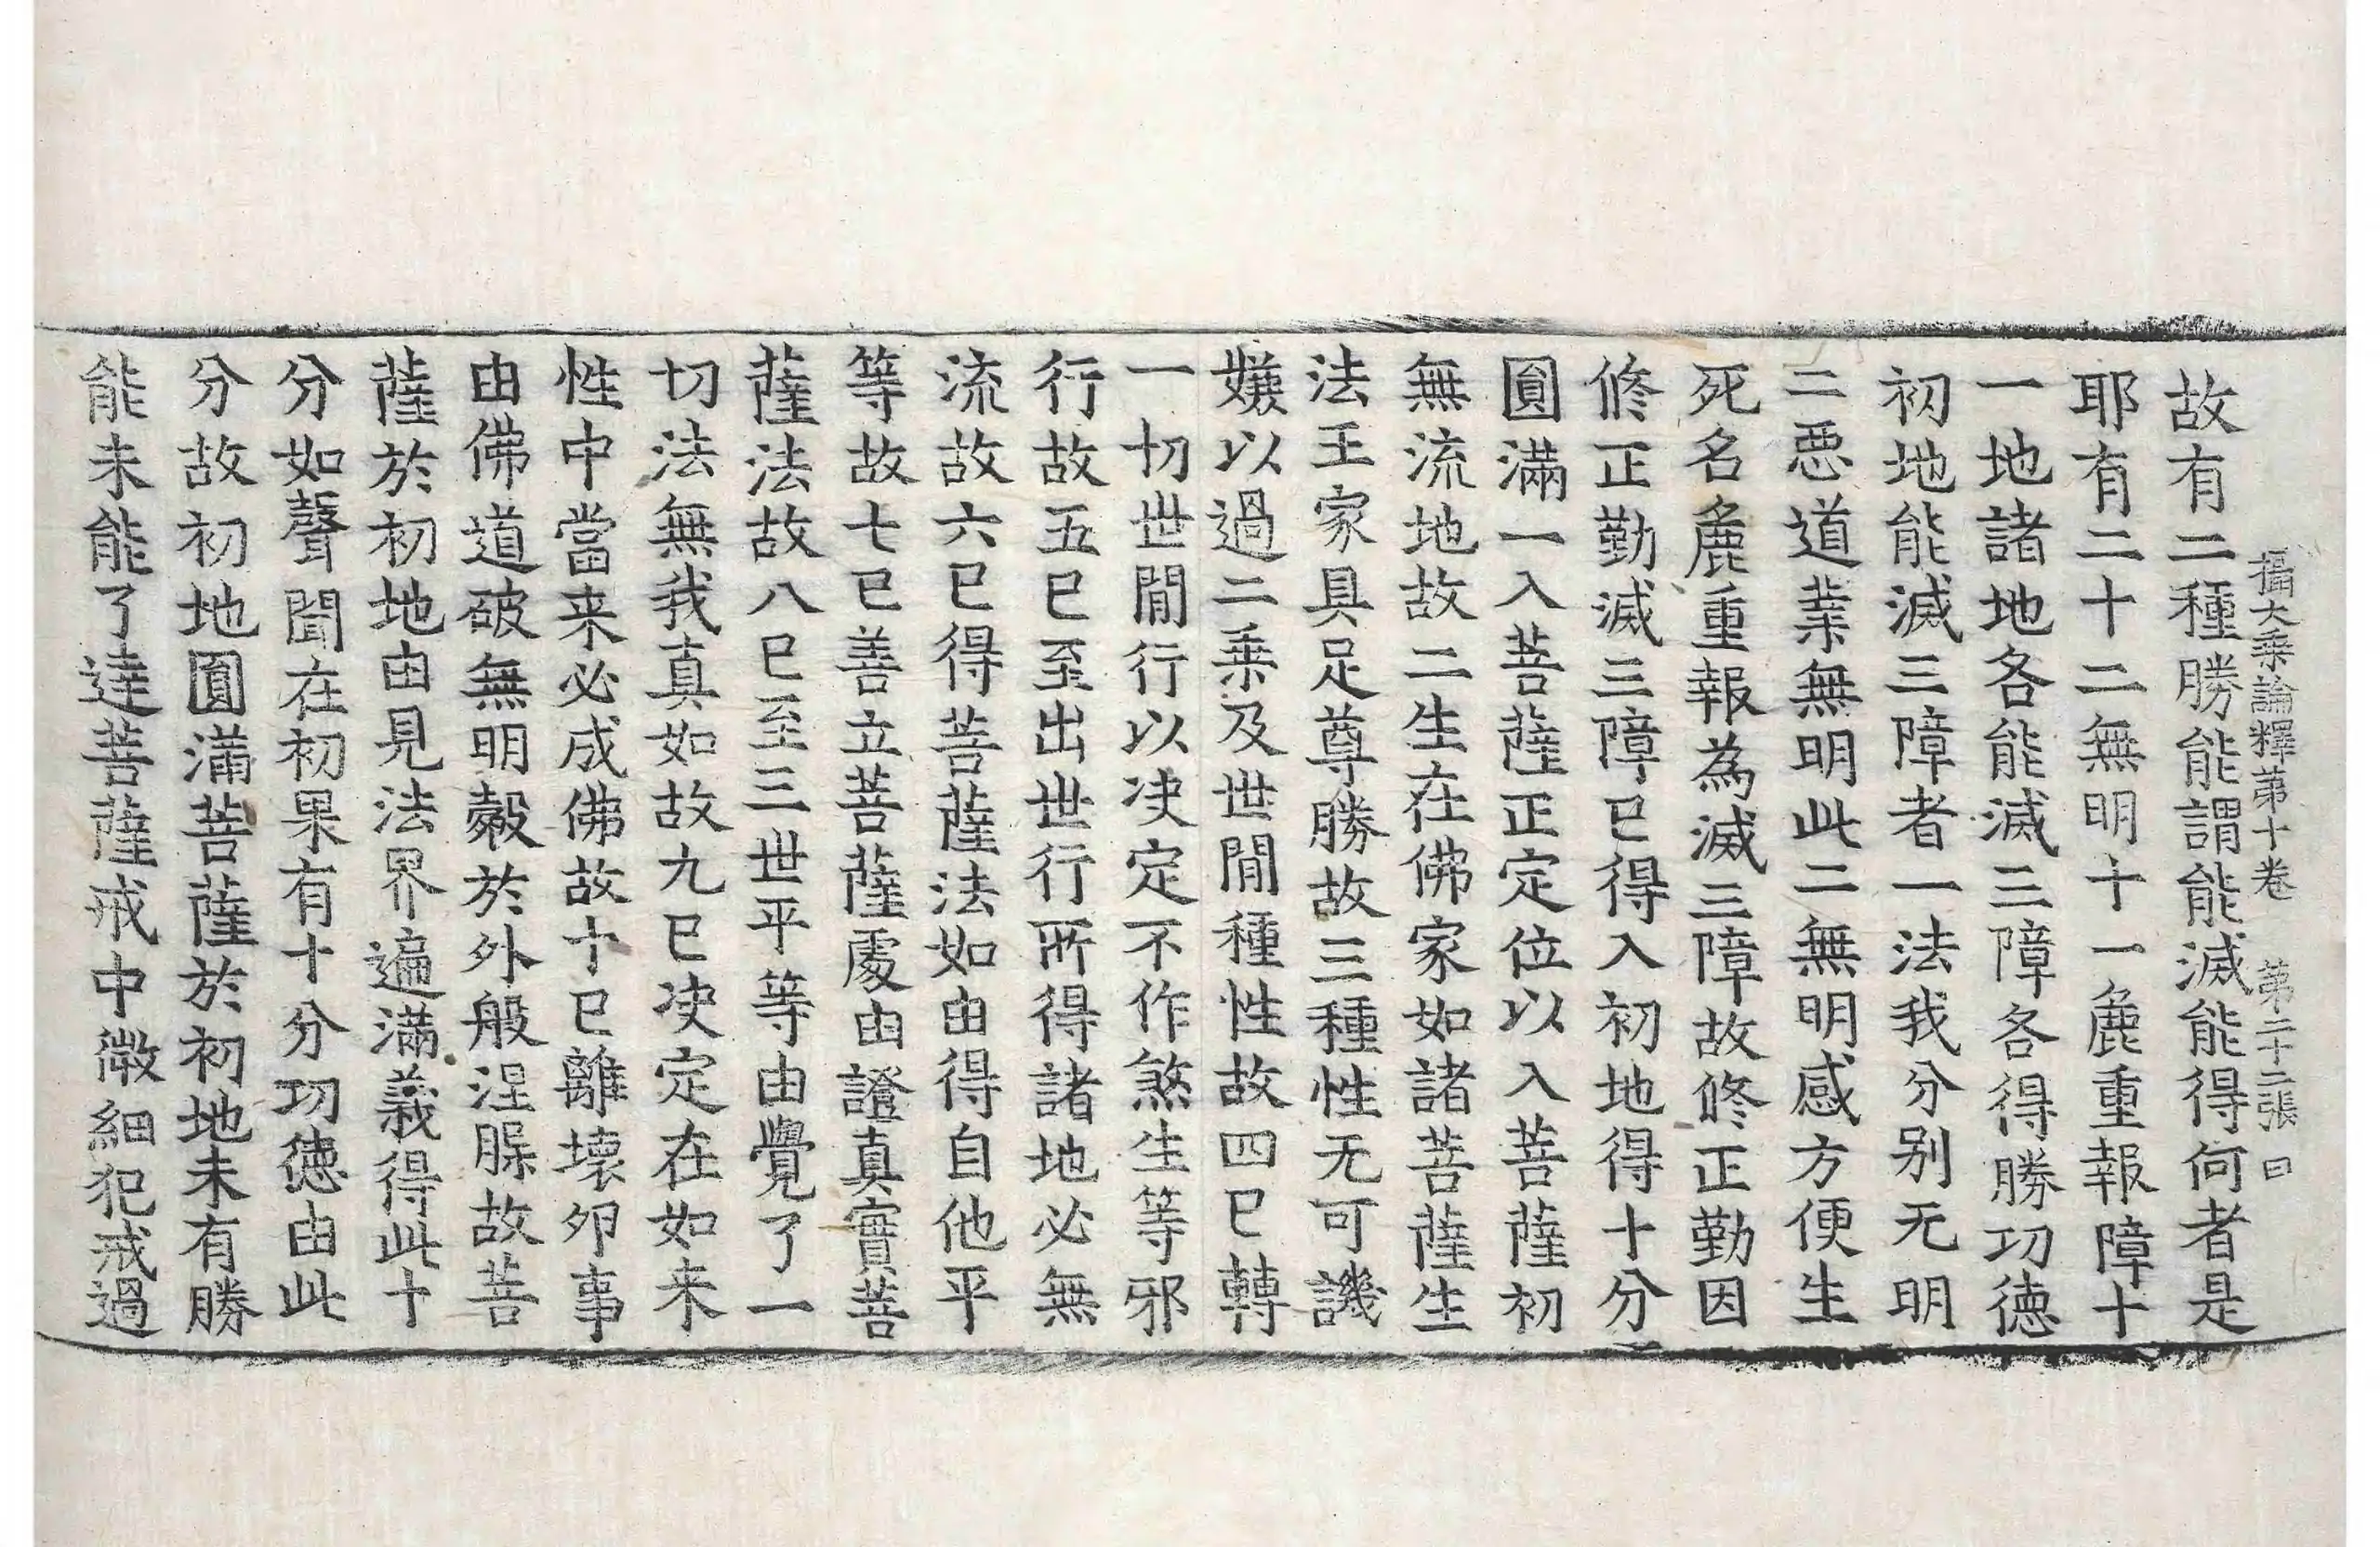 攝大乘論釋第十卷 第二十二張 曰
故有二種勝能謂能滅能得何者是
耶有二十二無明十一麁重報障十
一地諸地各能滅三障各得勝功徳
初地能滅三障者一法我分别无明
二惡道業無明此二無明感方便生
死名麁重報為滅三障故修正勤因
修正勤滅三障已得入初地得十分
圓滿一入菩薩正定位以入菩薩初
無流地故二生在佛家如諸菩薩生
法王家具足尊勝故三種性无可譏
嫌以過二乗及世間種性故四已轉
一切世間行以决定不作煞生等邪
行故五已至出世行所得諸地必無
流故六已得菩薩法如由得自他平
等故七已善立菩薩處由證真實菩
薩法故八已至三世平等由覺了一
切法無我真如故九已决定在如来
性中當来必成佛故十已離壞卵事
由佛道破無明㲉於外般涅脲故菩
薩於初地由見法界遍滿義得此十
分如聲聞在初果有十分功徳由此
分故初地圓滿菩薩於初地未有勝
能未能了達菩薩戒中微細犯戒過